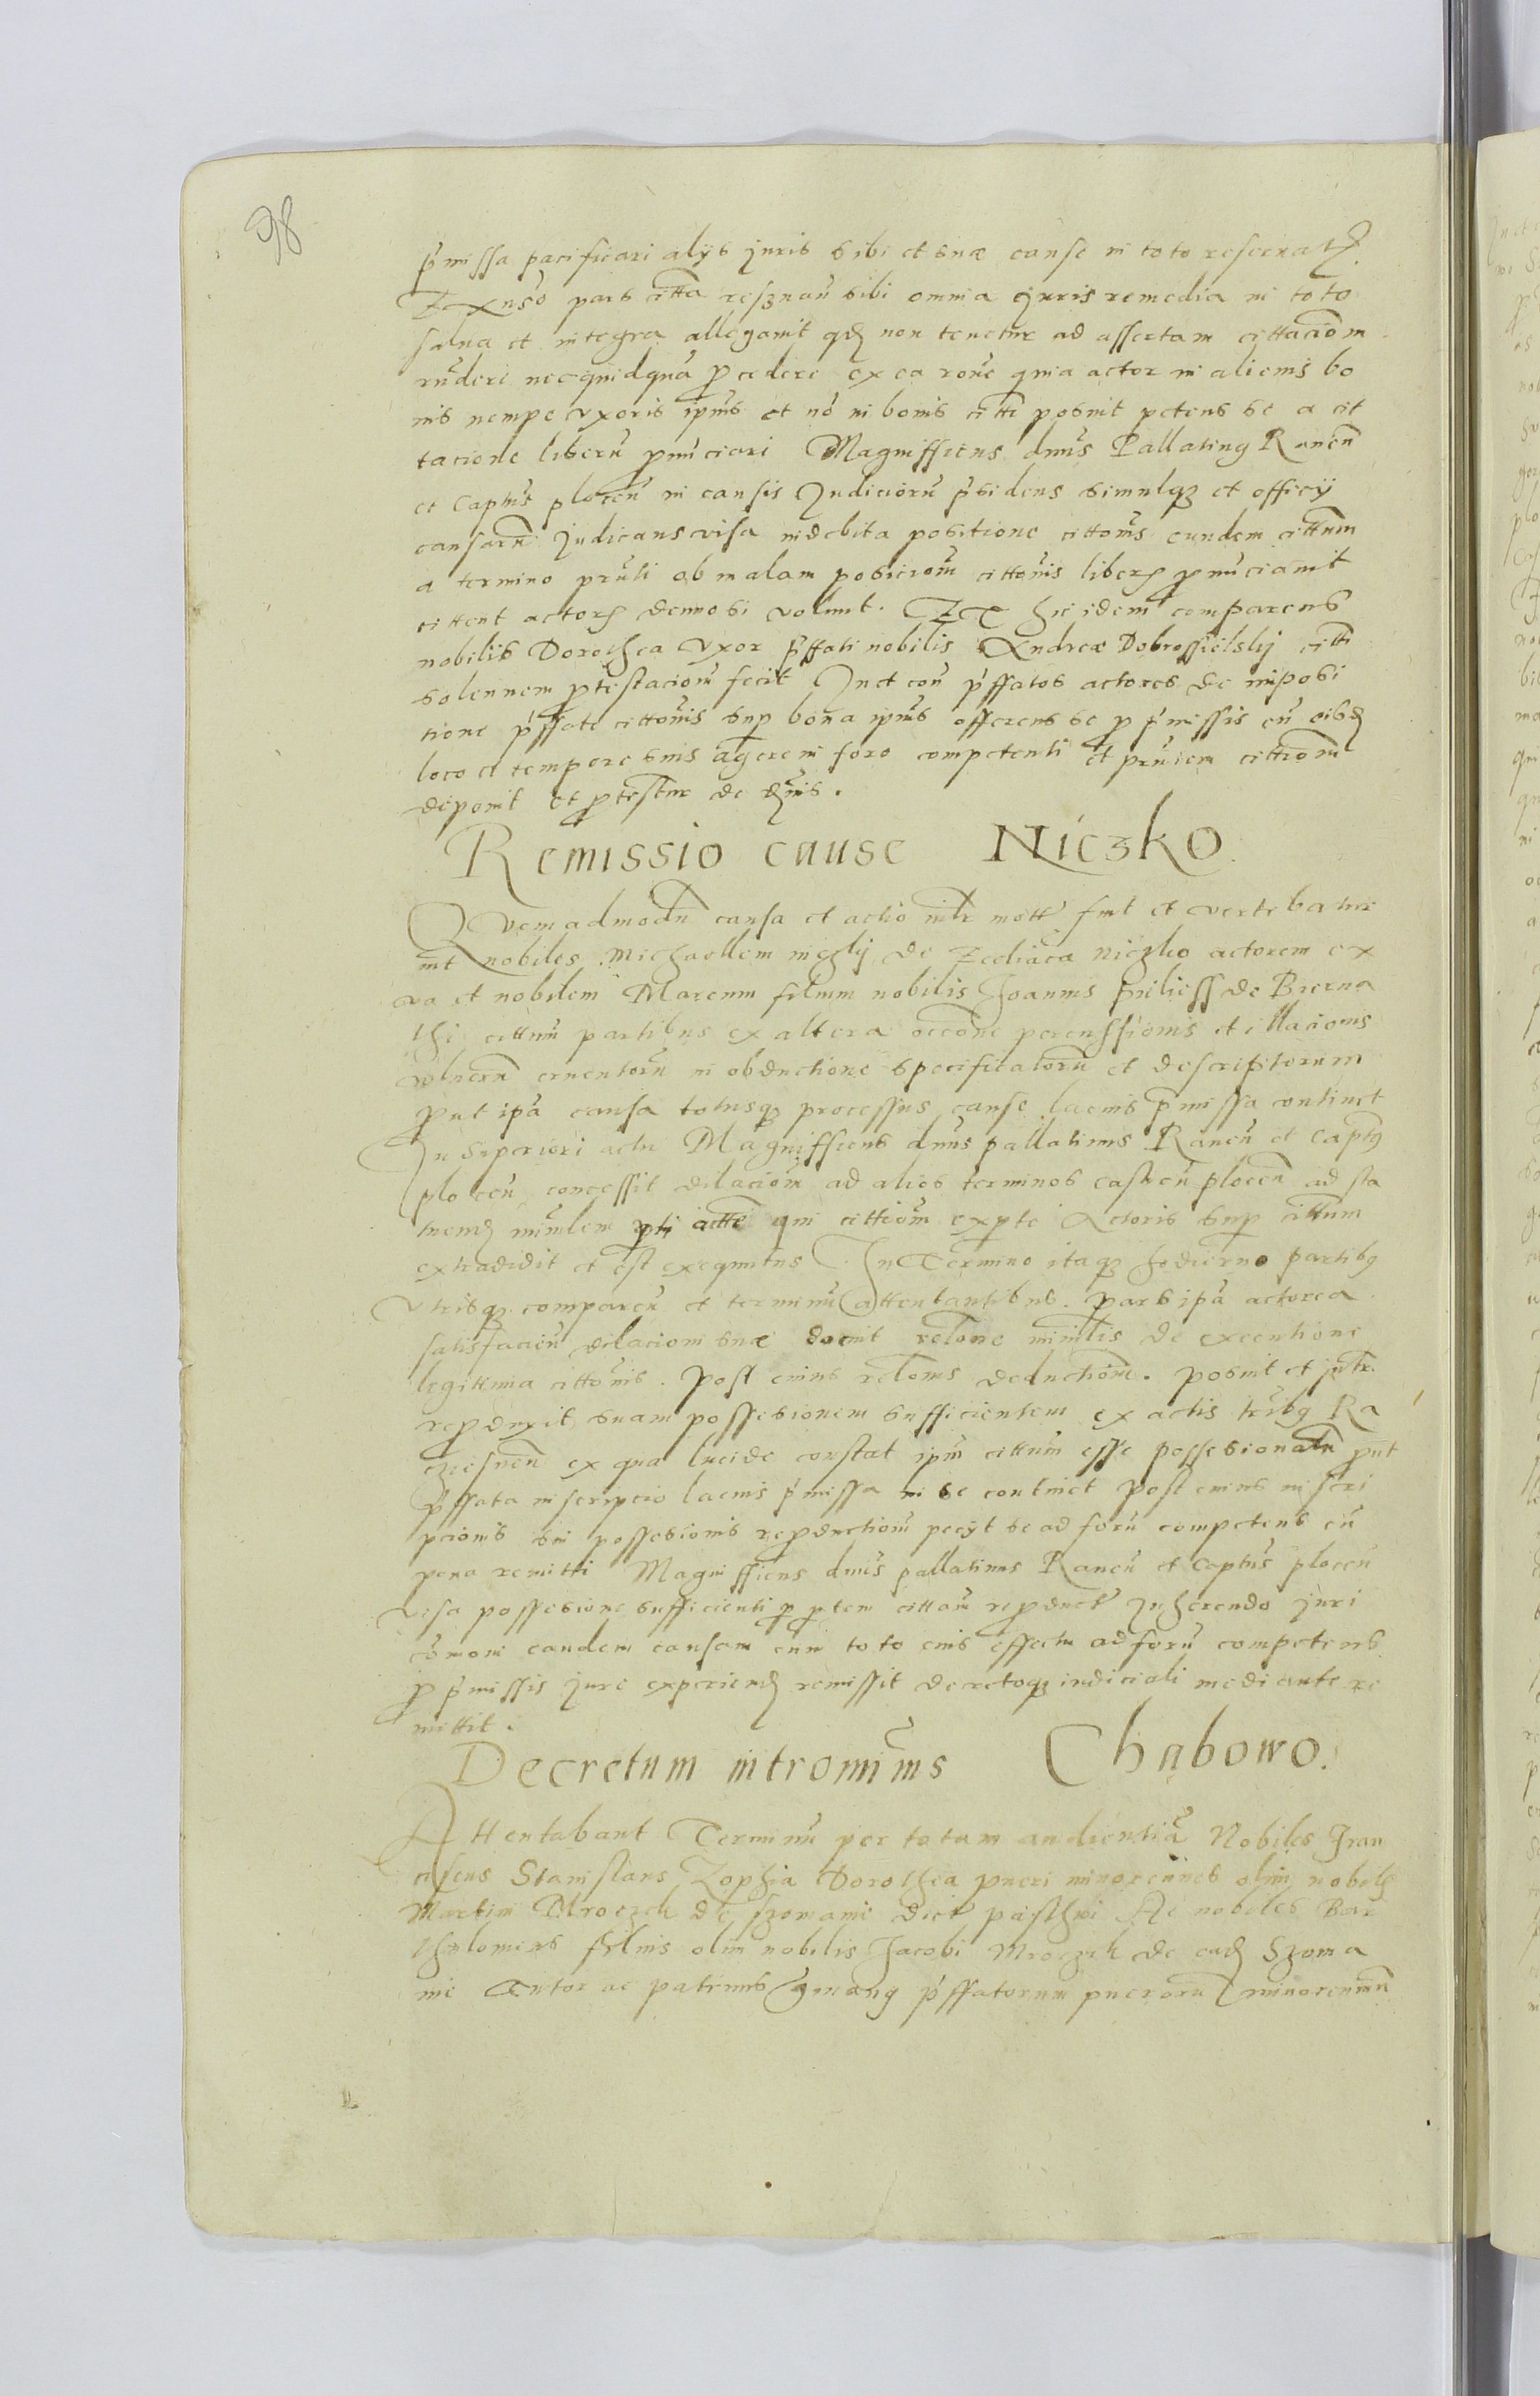 98
p̃missa pacificari alijs juris sibi et suæ cause in toto reseruat
Ex aduso pars citta resȝnan sibi omnia juris remedia in toto
salua et integra allegauit qd non tenetur ad assertam cittaciom
rñderi nec quidquã procedere ex ea rone quia actor in alienis bo
nis nempe vxoris ipius et nõ in bonis citti posuit petens se a cit
tacione liberũ pronũciari Magnifficus dnus Pallatinq Rauen
et Captus plocen in causis Judiciorũ p̃sidens simulqȝ et officij
causarũ Judicans visa indebita positione cittonis eundem cittum
a termino pñti ob malam posiciom cittonis liberũ pronũciauit
cittent actores denuo si volunt. Et hic idem comparens
nobilis Dorothea vxor p̃ffati nobilis Andreæ Dobrossielskij citti
solennem protestaciom fecit Juct con p̃ffatos actores de imposi
tione p̃ffate cittonis sup bona ipius offerens se pro p̃missis cũ eisd
loco et tempore suis agere in foro competenti et pñtem cittiom
deponit et protestur de damnis.
Remissio cause Niczko
Quemadmodũ causa et actio intr mott fuit et vertebatur
int nobiles Michaellem niczkij de niczko actorem ex
vna et nobilem Marcum filium nobilis Joannis pieliess de Bierna
thi cittum partibus ex altera occone percussionis et illacionis
vulnerũ cruentorũ in obductione specificatorũ et descriptorum
prout ipa causa totusqȝ processus cause lacius p̃missa continet
In superiori actu Magnifficus dnus pallatinus Rauen et Captq
plocen concessit dilaciom ad alios terminos castren plocen ad sta
tuend minlem pti citte qui cittiom ex pte Actoris sup cittum
extradidit et est exequutus In Termino itaqȝ hodierno partibq
vtrisqȝ comparen et terminũ attentantibus. Pars ipa actorea
satisfacien dilacioni suæ docuit relone minilis de executione
legittima cittonis. Post cuius relonis deductiom. Posuit et jntr
reproduxit suam possesionem sufficientem ex actis trbq Ra
cziesnen ex qua lucide constat ipm cittum esse possesionatũ prout
p̃ffata inscripcio lacius p̃missa in se continet Post cuius inscri
pcionis sui possesionis reproductiom pecijt se ad forũ competens cũ
pena remitti Magnifficus dnus pallatinus Rauen et Captus plocen
visa possesione sufficienti p ptem cittam reproduct Inherendo juri
cõmoni eandem causam cum toto eius effectu ad forũ competens
pro p̃missis jure experiend remissit decretoqȝ iudiciali mediante re
mittit.
Decretum intromiũis Chąbowo.
Attentabant Terminũ per totam audientiã Nobiles Fran
ciscus Stanislaus Zophia Dorothea pueri minorennes olim nobilis
Martini Mroczek de szomanie dict paschni Ac nobiles Bar
tholomeus filius olim nobilis Jacobi Mroczek de ead Szoma
nie Tutor ac patruus germanq p̃ffatorum puerorũ minorennũ